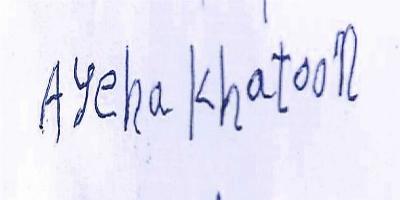 Ayeha Khatoon